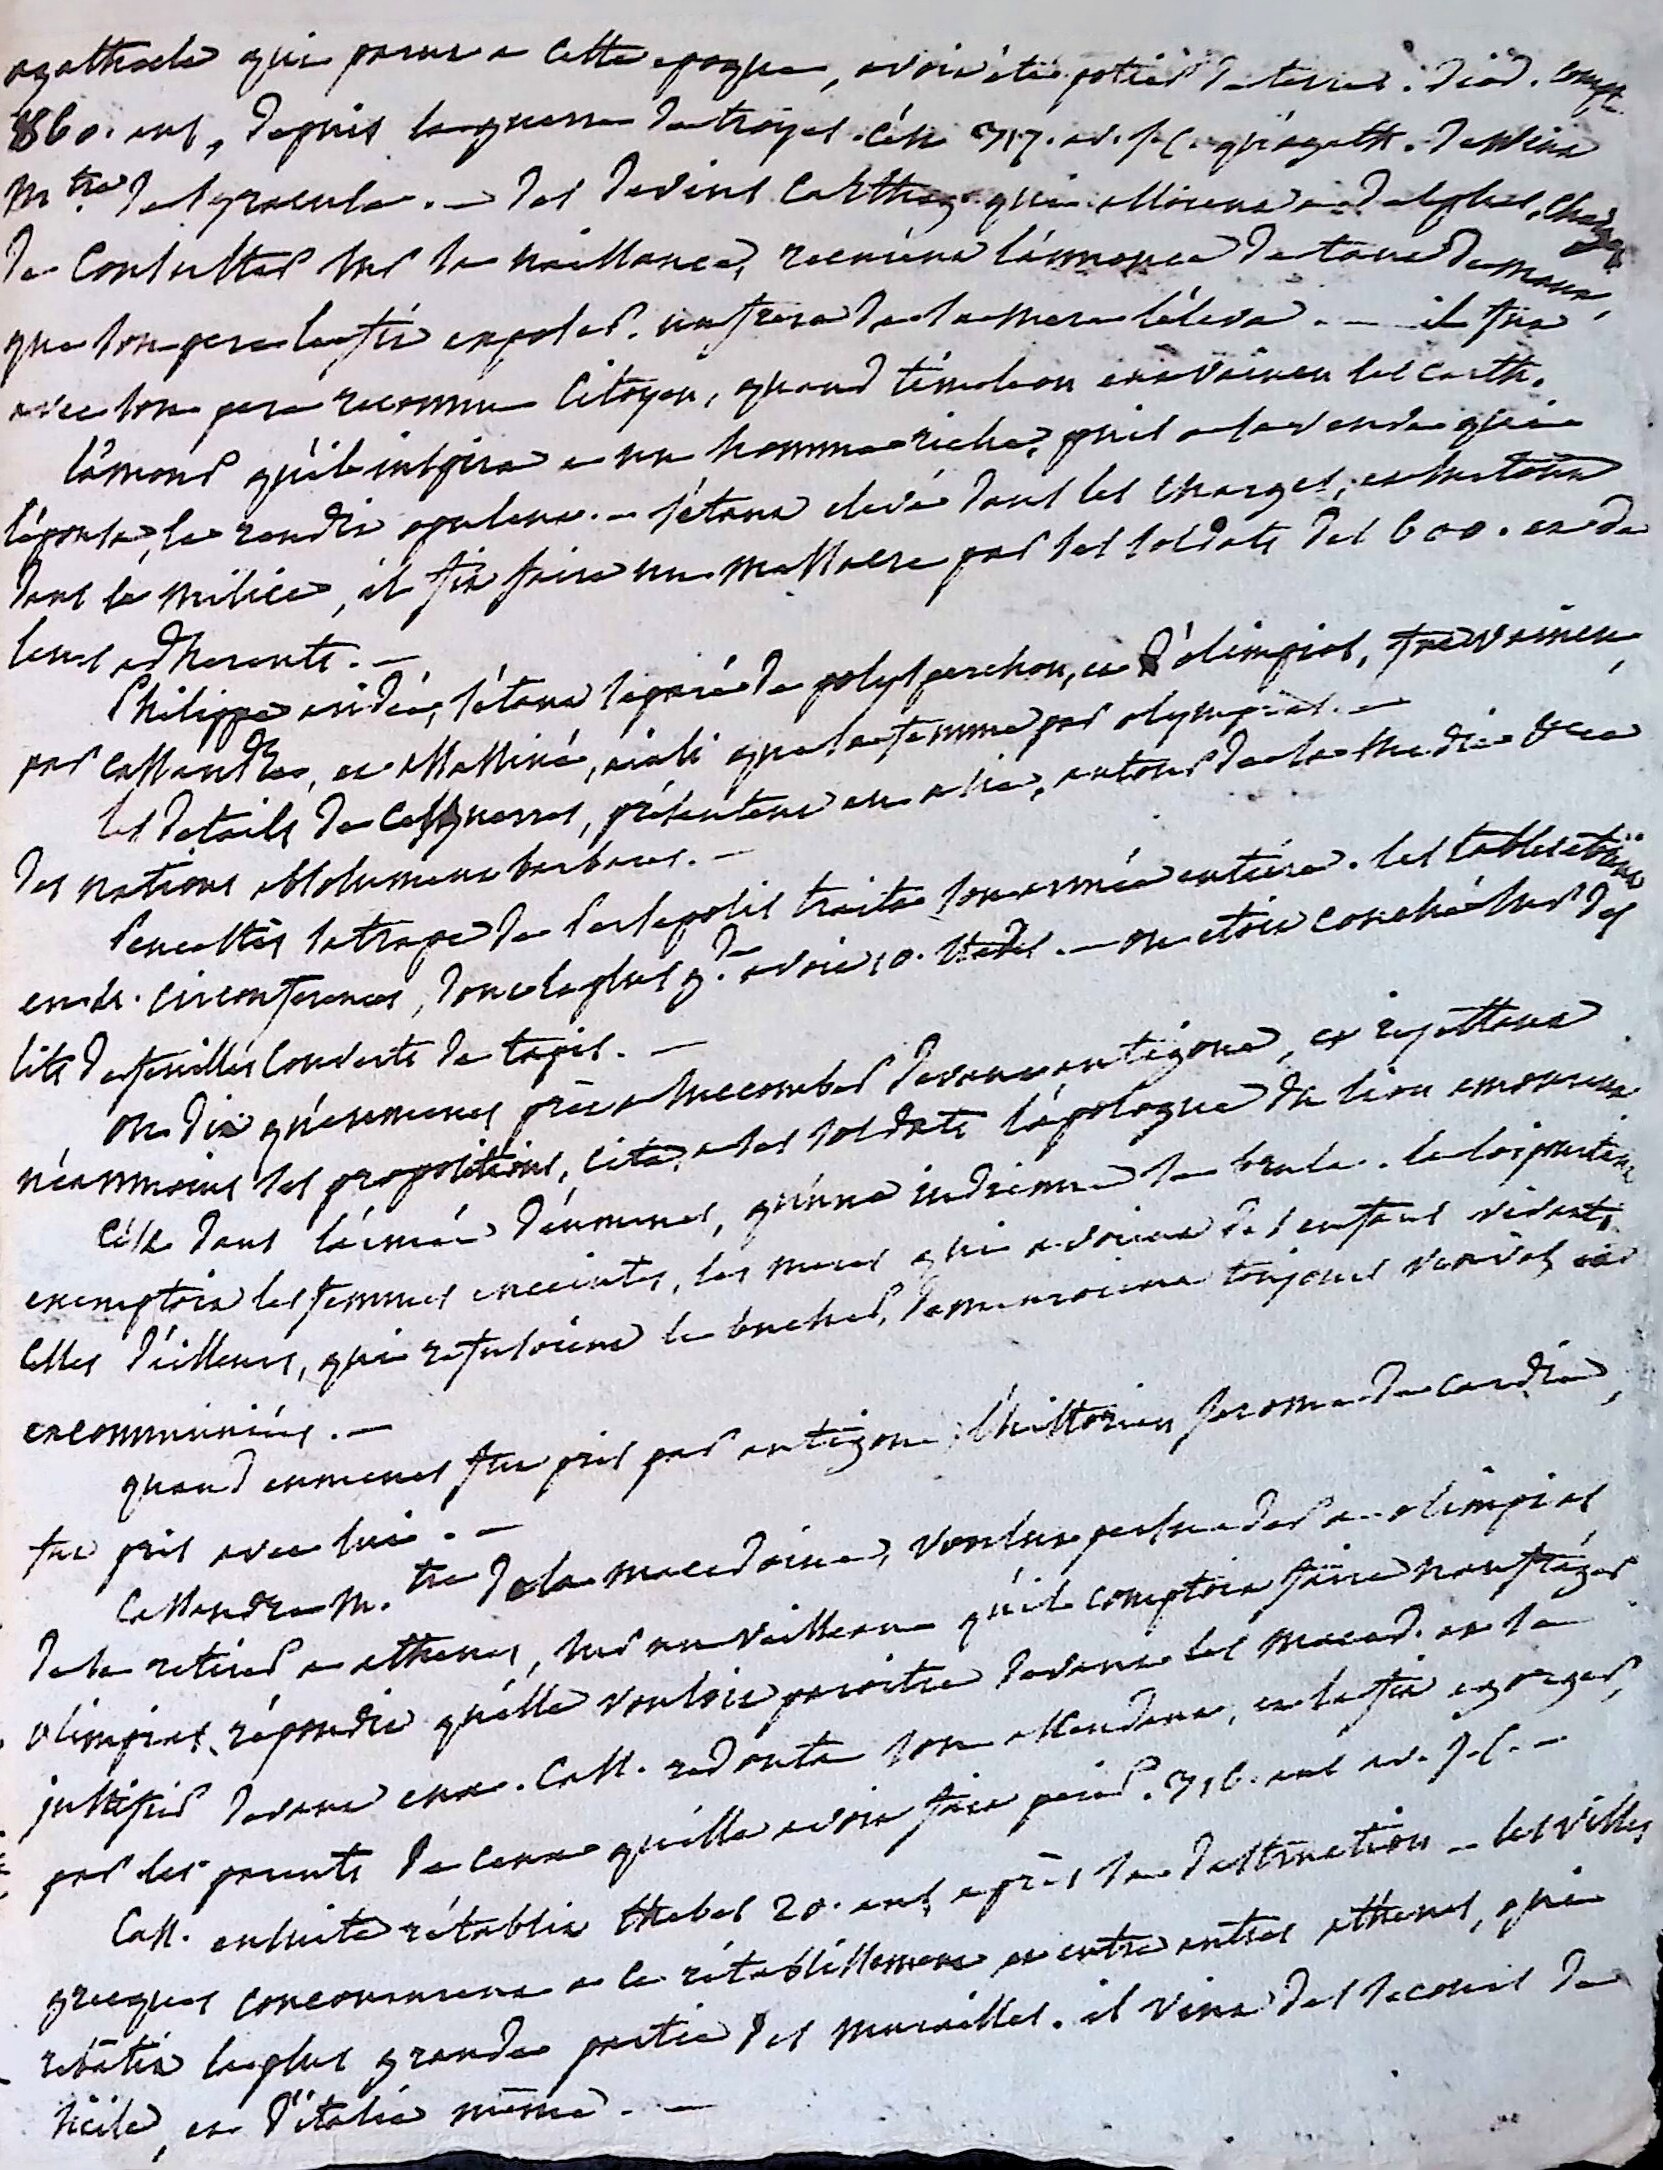 agathocle qui parut a cette epoque, avoit été potier de terre. diod. compte
860. ans, depuis la guerre de troyes. c'est 317. av. J. C. qu'agath. devint
m.tre de syracuse. — des devins carthag. qui alloient a delphes, chargés
de consulter sur sa naissance, recurent l'annonce de tant de maux,
que son pere le fit exposer. un frere de sa mere l'éleva. — il fut
avec son pere reconnu citoyen, quand timoleon eut vaincu les carth.
l'amour qu'il inspira a un homme riche, puis a sa veuve qui
l'épousa, le rendit opulent. — s'étant elevé dans les charges, et surtout
dans la milice, il fit faire un massacre par ses soldats des 600. et de
leurs adherents. —
Philippe aridée, s'étant separé de polysperchon, et d'olimpias, fut vaincu
par cassandre, et assassiné, ainsi que sa femme par olympias. —
les details de ces guerres, présentent en asie, autour de la medie &ca
des nations absolument barbares. —
Peucestès satrape de Persepolis traita son armée entiere. les tables étoient
en 4. circonferences, dont la plus g.de avoit 10. stades. — on etoit couché sur des
lits de feuilles couverts de tapis. —
on dit qu'eumenes prêt a succomber devant antigone, et rejettant
néanmoins ses propositions, cita, a ses soldats l'apologue du lion amoureux.
C'est dans l'armée d'eumenes, qu'une indienne se brula. la loi pourtant
exemptoit les femmes enceintes, les meres qui avoient des enfans vivants,
celles d'ailleurs, qui refusoient le bucher, demeuroient toujours veuves et
excommuniées. —
quand eumenes fut pris par antigone, l'historien Jerome de cardie,
fut pris avec lui. —
Cassandre m.tre de la macedoine, voulut persuader a olimpias
de se retirer a athenes, sur un vaisseau qu'il comptoit faire naufrager
olimpias, répondit qu'elle vouloit paroitre devant les maced. et se
justifier devant eux. Cass. redouta son ascendant, et la fit egorger,
par les parents de ceux qu'elle avoit fait perir. 316. ans av. J. C. —
Cass. ensuite rétablit thebes 20. ans après sa destruction — les villes
grecques concoururent a ce rétablissement et entre autres athenes, qui
rebâtit la plus grande partie des murailles. il vint des secours de
sicile, et d'italie même. —